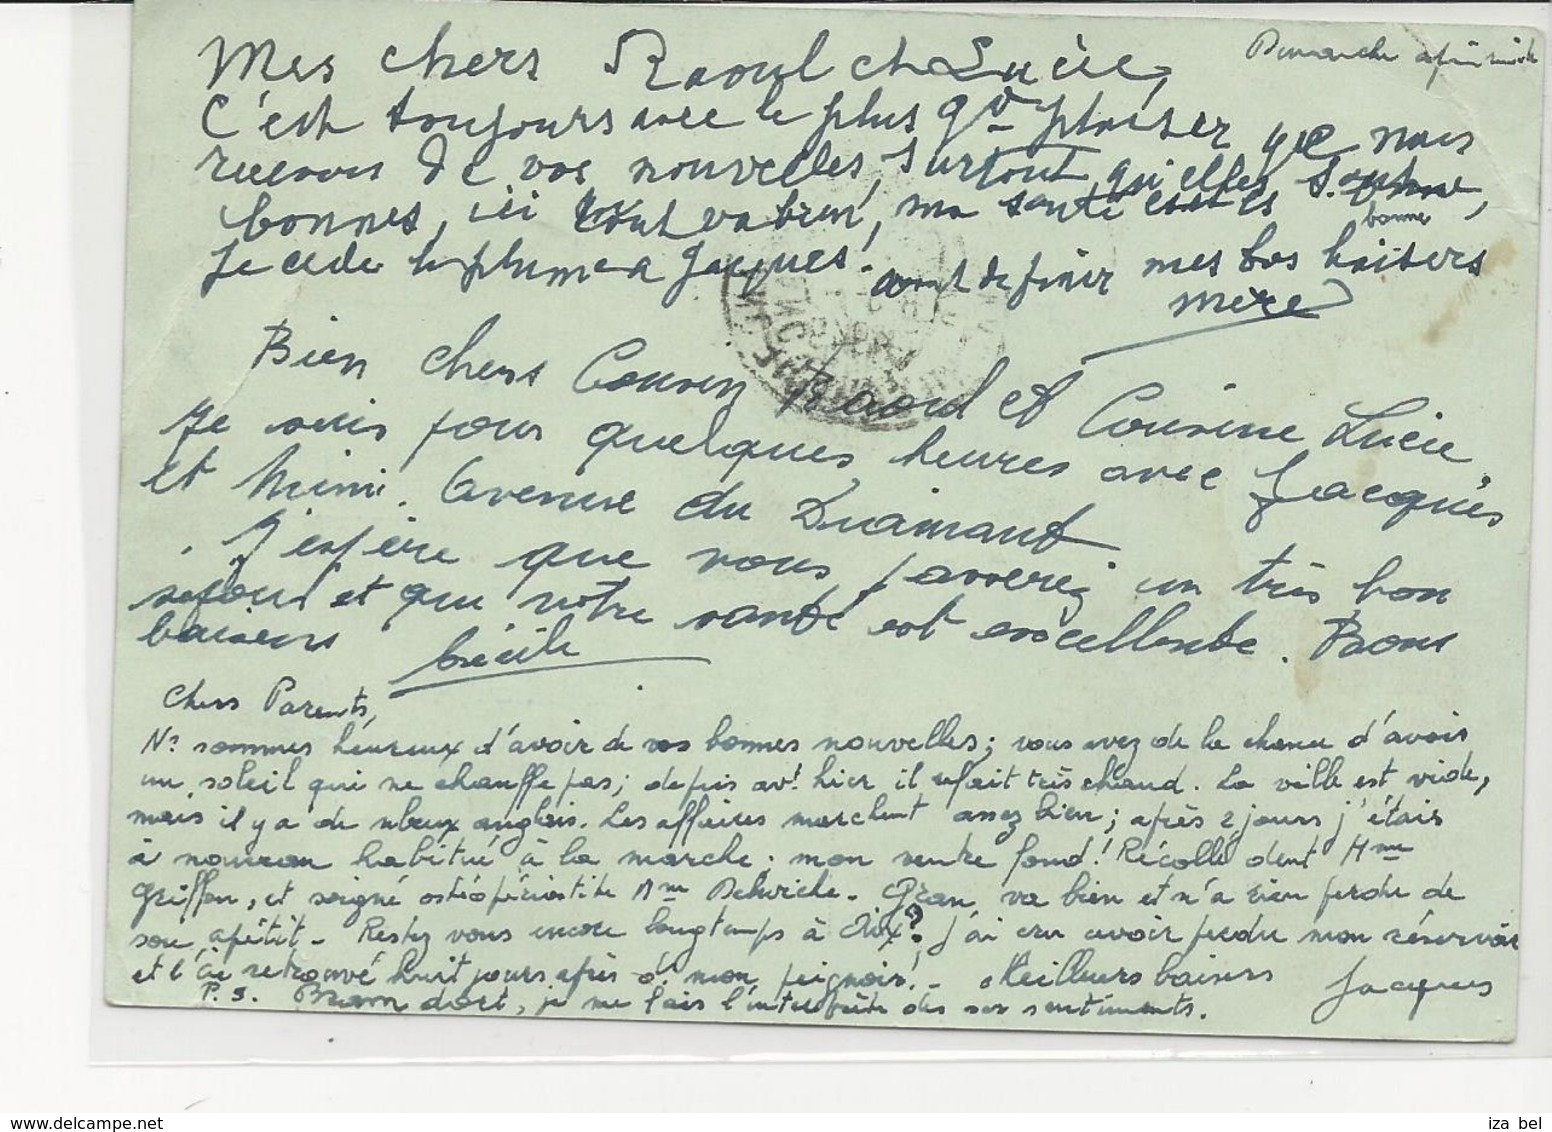 Dimanche après midi
Mes chers Raoul et Lucie,
C'est toujours avec le plus gd plaisir que nous
recevons de vos nouvelles, surtout qu'elles sont
bonnes, ici tout va bien, ma santé est bonne,
Je cède la plume a Jacques. avant de finir mes bos baisers
mère
Bien chers Cousin Raoul et Cousine Lucie
Je suis pour quelques heures avec Jacques
et Mimi. Avenue du Diamant
J'espère que vous passerez un très bon
séjour et que votre santé est excellente. Bons
baisers Cécile
Chers Parents,
Ns sommes heureux d'avoir de vos bonnes nouvelles; vous avez de la chance d'avoir
un soleil qui ne chauffe pas; depuis avt hier il refait très chaud. La ville est vide,
mais il y a de nbeux anglais. Les affaires marchent assez bien; après 2 jours j'étais
à nouveau habitué à la marche; mon ventre fond! Récollé dent Mme
Griffon, et soigné ostéopériostite Mme Delwiche. Gran va bien et n'a rien perdu de
son apétit. Restez vous encore longtemps à Aix? J'ai cru avoir perdu mon réservoir
et l'ai retrouvé huit jours après ds mon peignoir! Meilleurs baisers Jacques
P.S. dort, je me fais l'interprète de ses sentiments.
iza bel